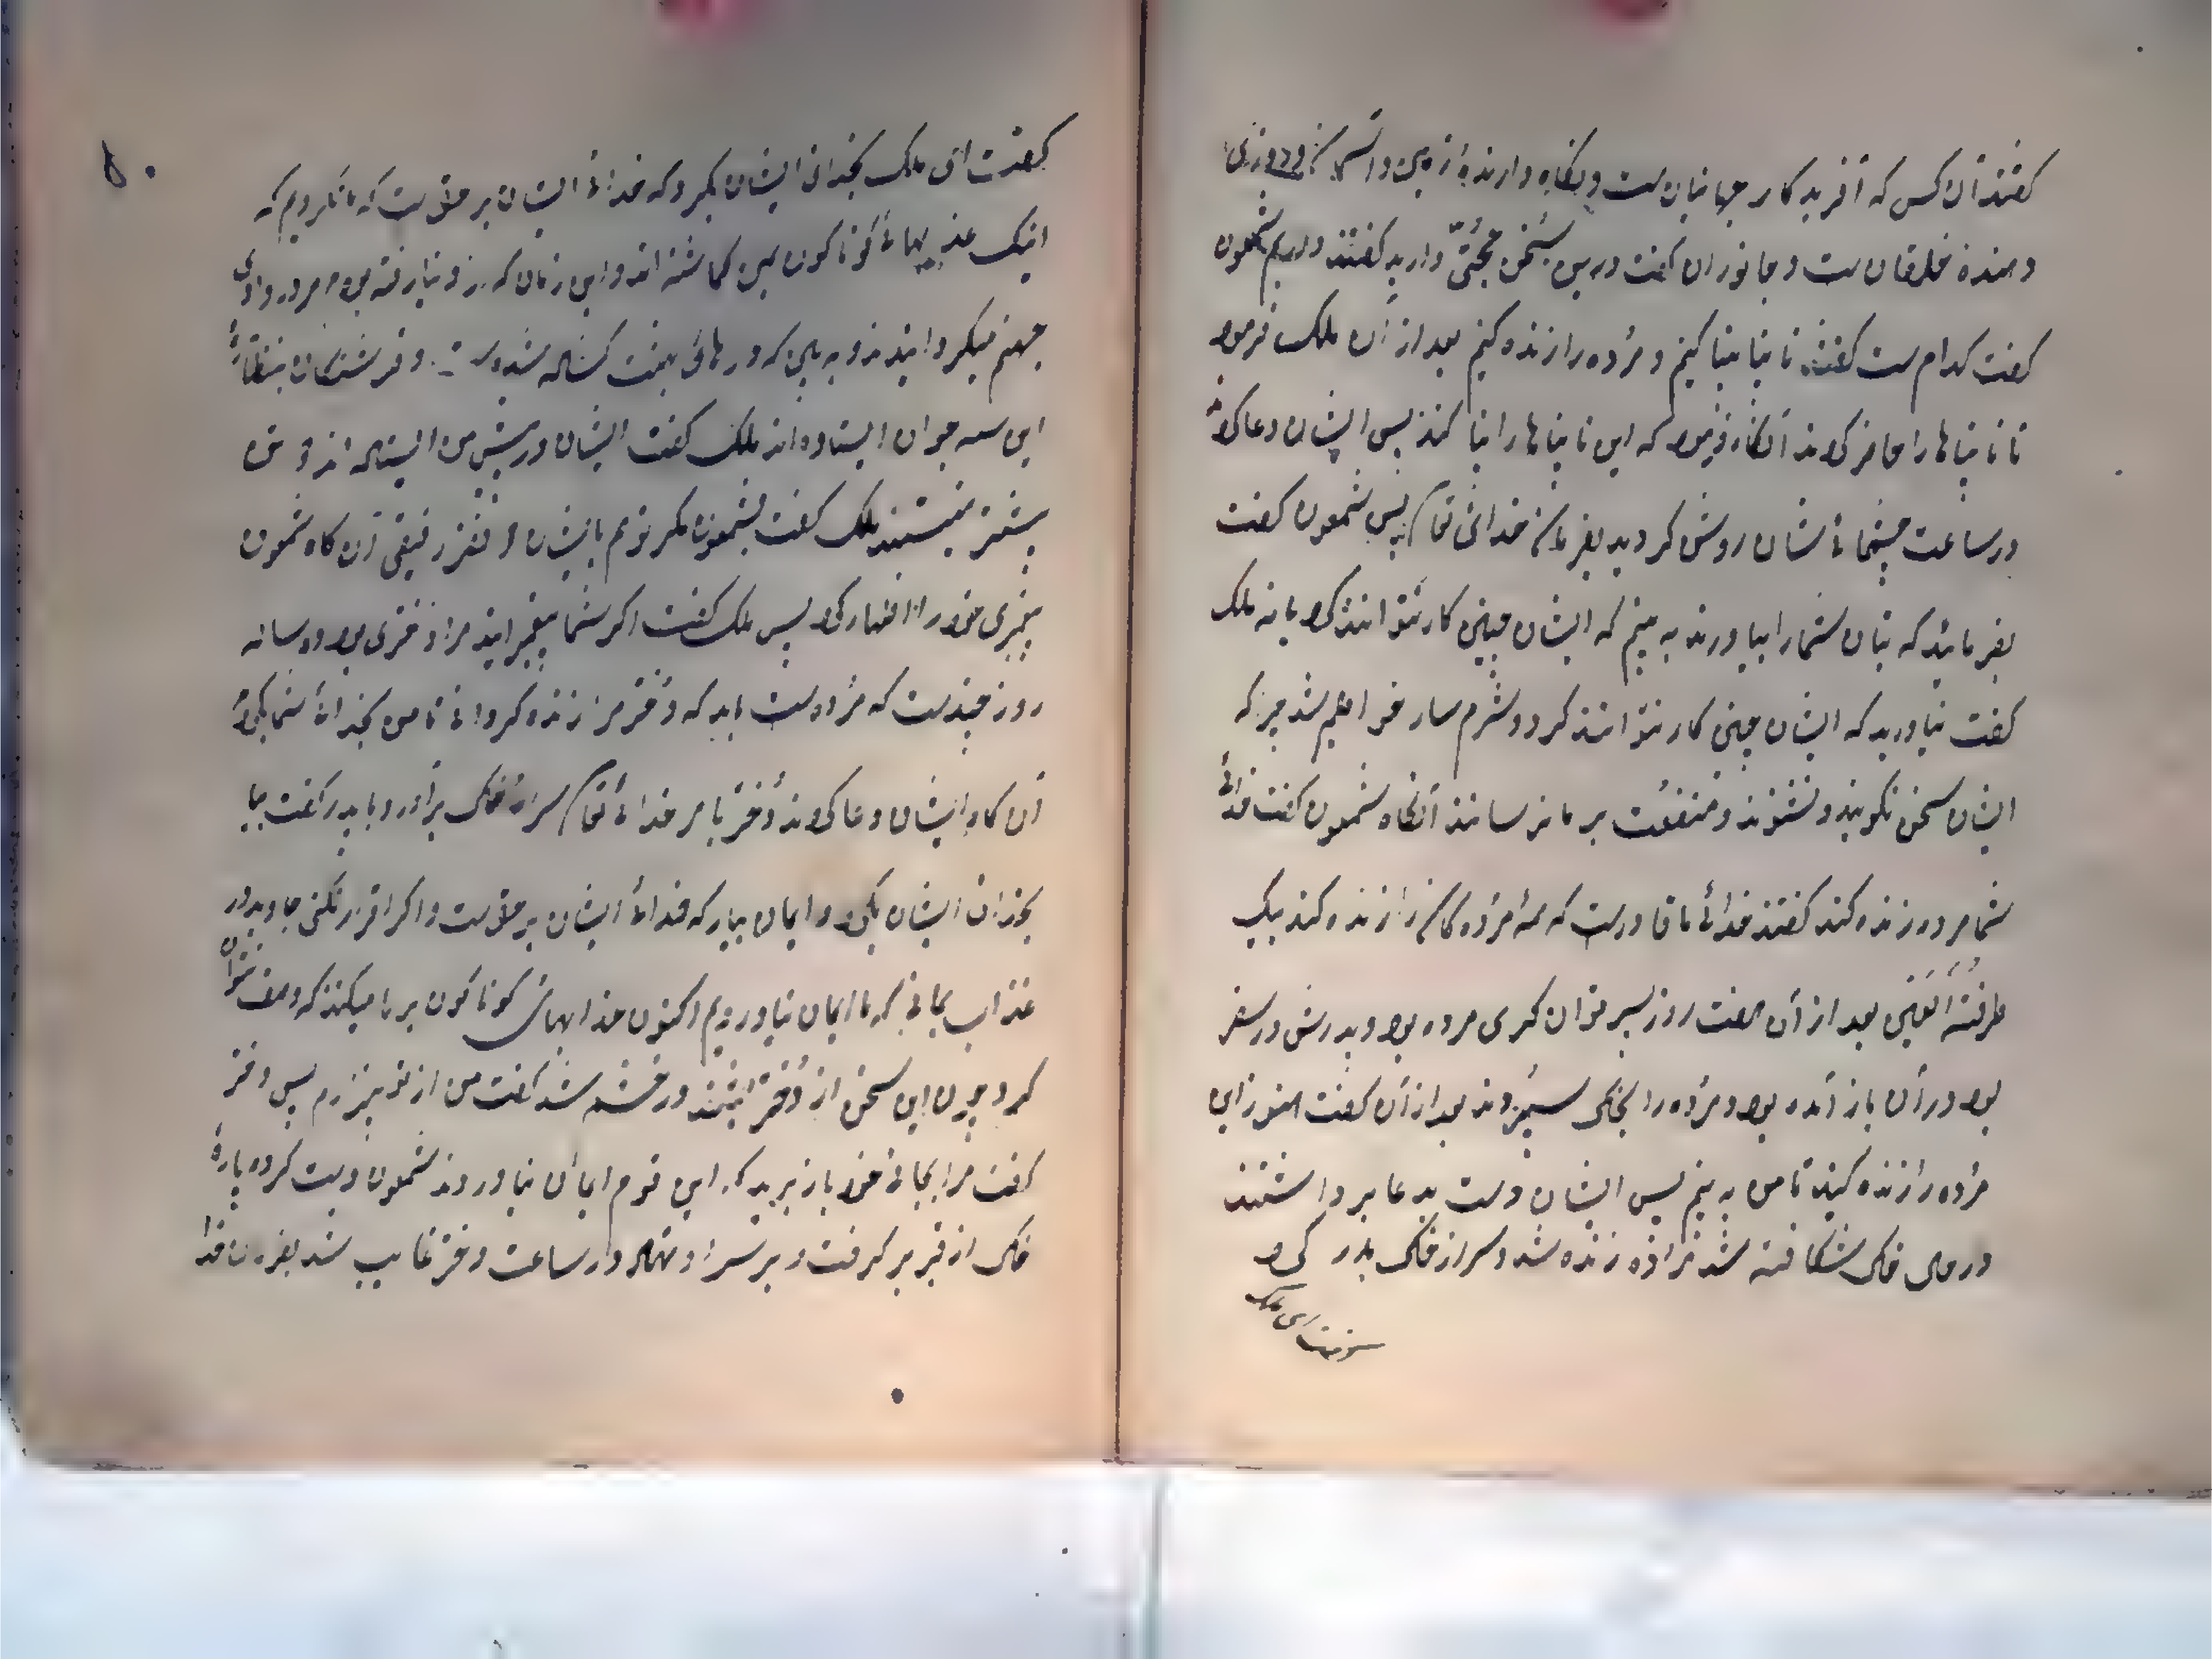 گفتند آن کس که آفریدکار جهانیان است و نگاه دارنده زمین و آسمان و روزی
دهنده خلقان است و جانوران گفت درین سخن حجتی دارید گفتند داریم شمعون
گفت کدام است گفتند نابینا بینا کنیم و مرده را زنده کنیم بعد از آن ملک فرمود
تا نابیناها را حاضر کردند آنگاه فرمود که این نابیناها را بینا کنند پس ایشان دعا کردند
در ساعت چشمهاء شان روشن کردید بفرمان خدای تعالی پس شمعون گفت
بفرمائید که بتان شما را بیاورند به بینم که ایشان چنین کار توانند کرد یا نه ملک
گفت نیاورید که ایشان چنین کار نتوانند کرد و شرم سار خواهیم شد چرا که
ایشان سخن نگویند و نشنوند و منفعت بر ما نرسانند آنگاه شمعون گفت خدائ
شما مرده زنده کند گفتند خدائ ما قادر است که همه مرده کان را زنده کند بیک
طرفة العین بعد از آن هفت روز پسر مرده بود و پدرش در سفر
بود در آن باز آمده بود و مرده را بخاک سپردند بعد از آن گفت هنوز این
مرده را زنده کنید تا من به بینم پس ایشان دست بدعا برداشتند
در حال خاک شکافته شد زنده شد و سر از خاک بدر کرد
گفت ای ملک
گفت ای ملک بخدای ایشان بگرو که خدائ ایشان بر حق است که ما نگرویدیم که
اینک عذابهاء گوناگون بمن گماشته اند و این زمان که از دنیا رفته بودم مرا در وادی
جهنم میگردانیدند و به بین که درهائ بهشت گشاده شده است و فرشتگان بنظاره
این سه جوان ایستاده اند ملک گفت ایشان در پیش من ایستاده اند و من
پیشتر ملک گفت شمعون مگر تو هم بایشان رفیقی آن گاه شمعون
پیغمبری خود را اظهار کرد پس ملک گفت اگر شما پیغمبرانید مرا دختری بود ده ساله
روز چند است که مرده است باید که دختر مرا زنده گردانی تا من بخدائ شما بگروم
آن گاه ایشان دعا کردند دختر بامر خدائ تعالی سر از خاک برآورد و با پدر گفت بیا
بخدای ایشان بگرو و ایمان بیار که خدائ ایشان بر حق است و اگر اقرار نکنی جاوید در
عذاب بمانی که ما ایمان نیاوردیم اکنون عذابهای گوناگون بر ما میکنند که وصف نتوان
کرد چون این سخن از دختر شنید در خشم شد گفت من از تو بیزارم پس دختر
گفت مرا بجائ خود باز برید که این قوم ایمان نیاوردند شمعون دست کرد و پارۀ
خاک از قبر برگرفت و بر سر او نهاد در ساعت دختر غایب شد بفرمان خدا